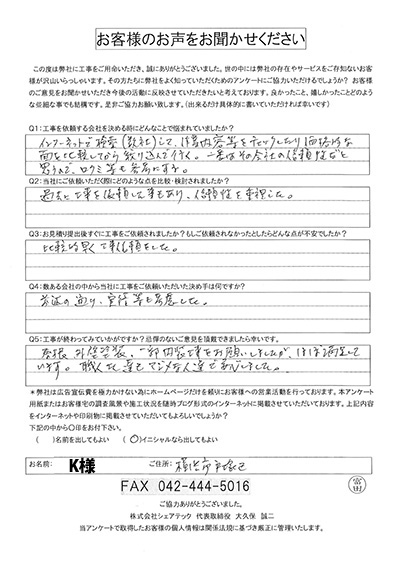 お客様のお声をお聞かせください
この度は弊社に工事をご用命いただき、誠にありがとうございました。世の中には弊社の存在やサービスをご存知ないお客
様が沢山いらっしゃいます。その方たちに弊社をよく知っていただくためのアンケートにご協力いただけるでしょうか？ お客様
のご意見をお聞かせいただき今後の活動に反映させていただきたいと考えております。良かったこと、嬉しかったことどのよう
な些細な事でも結構です。是非ご協力お願い致します。（出来るだけ具体的に書いていただければ幸いです）
Q1：工事を依頼する会社を決める時にどんなことで悩まれていましたか？
インターネットで検索（数社）して、作業内容等をチェックしたり価格的な
面を比較してから絞り込んで行く。一番はその会社の信頼性だと
思うので、口コミ等も参考にする。
Q2：当社にご依頼いただく際にどのような点を比較・検討されましたか？
過去に工事を依頼した事もあり、信頼性を重視した。
Q3：お見積り提出後すぐに工事をご依頼されましたか？もしご依頼されなかったとしたらどんな点が不安でしたか？
比較的早く工事依頼をした。
Q4：数ある会社の中から当社に工事をご依頼いただいた決め手は何ですか？
前述の通り、実績等も考慮した。
Q5：工事が終わってみていかがですか？忌憚のないご意見を頂戴できましたら幸いです。
屋根、外壁塗装、一部内装工事をお願いしましたが、ほぼ満足して
います。職人さん達もマジメな人達で安心しました。
＊弊社は広告宣伝費を極力かけない為にホームページだけを頼りにお客様への営業活動を行っております。本アンケート
用紙またはお客様宅の調査風景や施工状況を随時ブログ形式のインターネットに掲載させていただいております。上記内容
をインターネットや印刷物に掲載させていただいてもよろしいでしょうか？
下記の中から〇印をお付下さい。
（ ）名前を出してもよい （〇）イニシャルなら出してもよい
お名前： K様 ご住所： 横浜市戸塚区
FAX 042-444-5016
富田
ご協力ありがとうございました。
株式会社シェアテック 代表取締役 大久保 誠二
当アンケートで取得したお客様の個人情報は関係法規に基づき厳正に管理いたします。